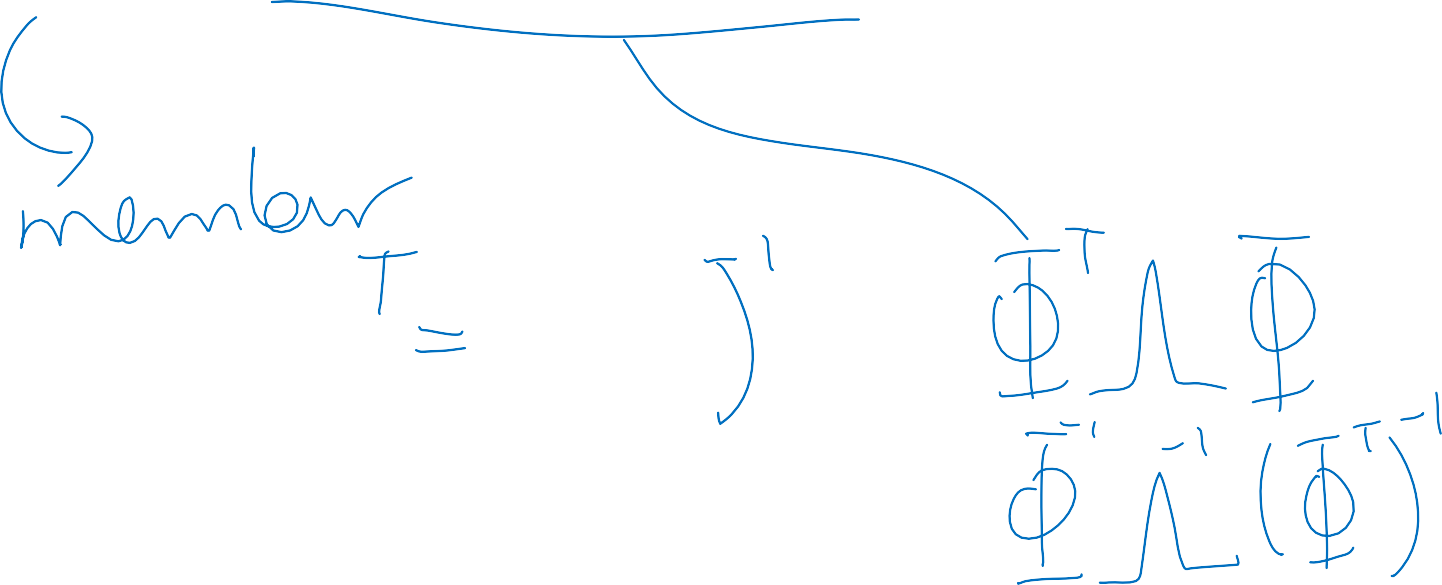 member
T = )⁻¹
Φᵀ Λ Φ
Φ⁻¹ Λ⁻¹ (Φᵀ)⁻¹